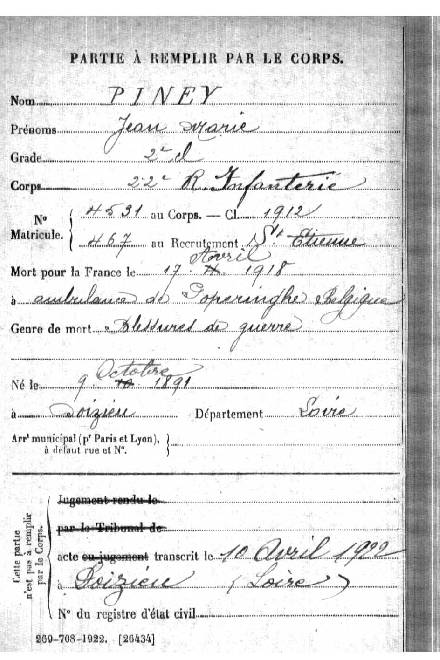 PARTIE À REMPLIR PAR LE CORPS.
Nom PINEY
Prénoms Jean Marie
Grade 2e cl
Corps 22e R. Infanterie
N° Matricule. { 4531 au Corps. — Cl. 1912
467 au Recrutement St Etienne
Avril
Mort pour la France le 17 1918
à ambulance de Poperinghe Belgique
Genre de mort Blessures de guerre
Octobre
Né le 9 10 1891
à Doizieu Département Loire
Arrt municipal (pr Paris et Lyon), à défaut rue et N°. }
Cette partie n'est pas à remplir par le Corps.
Jugement rendu le
par le Tribunal de
acte ou jugement transcrit le 10 Avril 1922
à Doizieu (Loire)
N° du registre d'état civil
269-708-1922. [26434]